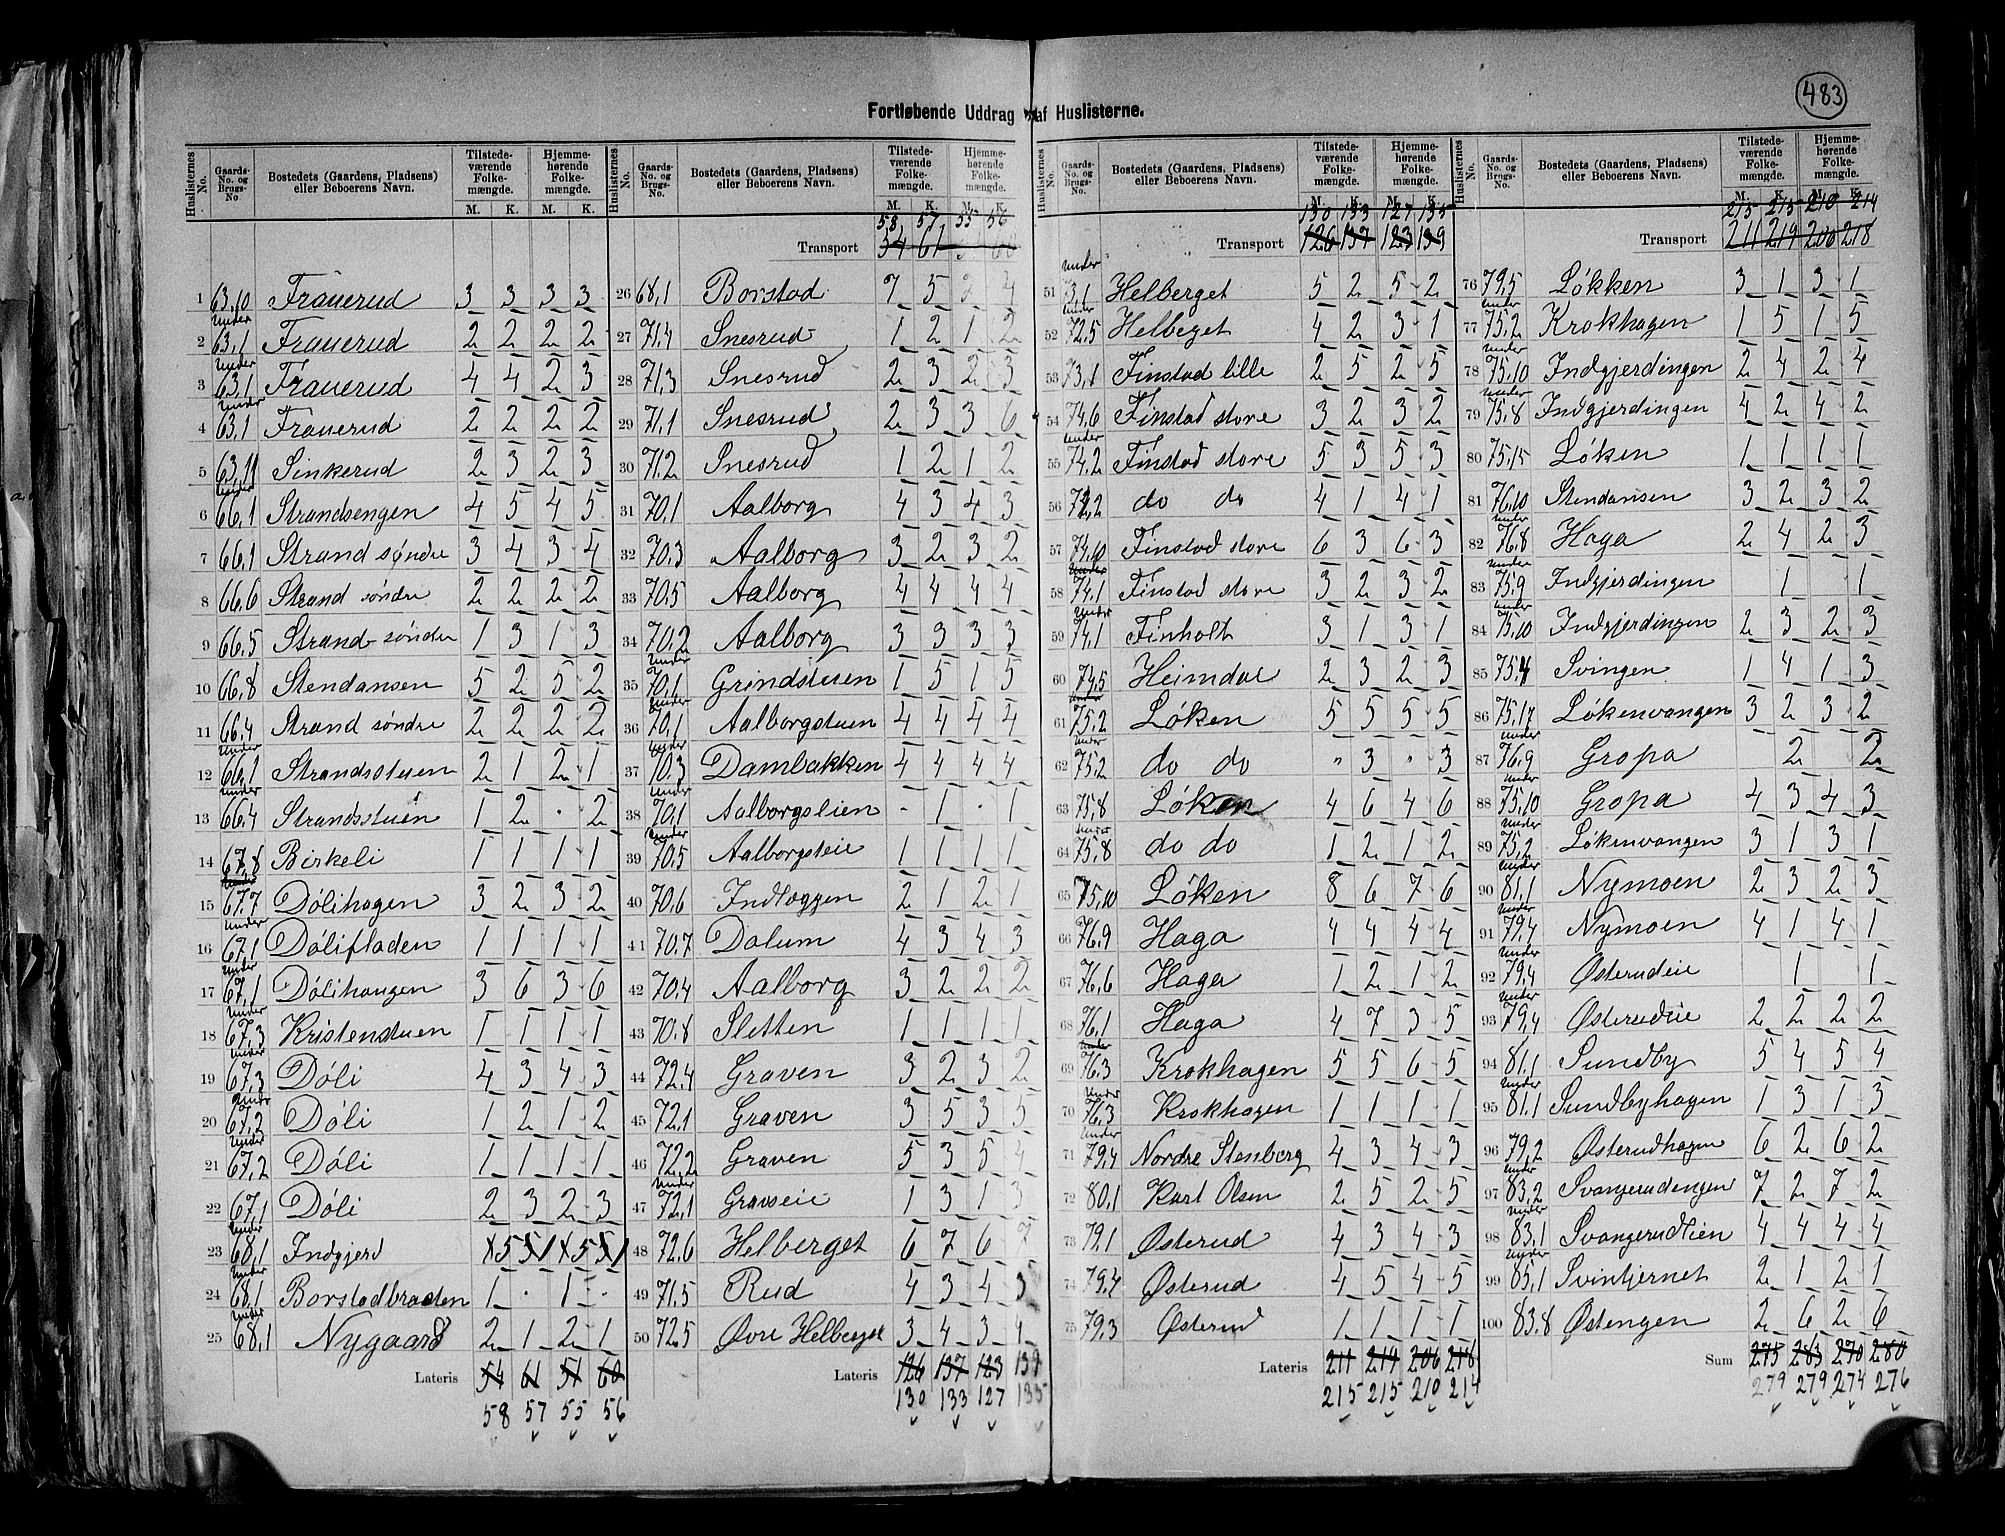 483
Fortløbende Uddrag af Huslisterne.
Huslisternes No. Gaards-No. og Brugs-No Bostedets (Gaardens, Pladsens) eller Beboerens Navn. Tilstedeværende Folkemængde. M. K. Hjemmehørende Folkemængde. M. K.
1 63,10 Frauerud 3 3 3 3
2 under 63,1 Frauerud 2 2 2 2
3 under 63,1 Frauerud 4 4 2 3
4 under 63,1 Frauerud 2 2 2 2
5 63,11 Sinkerud 2 3 2 3
6 under 66,1 Strandsengen 4 5 4 5
7 66,1 Strand søndre 3 4 3 4
8 66,6 Strand søndre 2 2 2 2
9 66,5 Strand søndre 1 3 1 3
10 66,8 Stendansen 5 2 5 2
11 66,4 Strand søndre 2 2 2 2
12 under 66,1 Strandsstuen 2 1 2 1
13 under 66,4 Strandsstuen 1 2 · 2
14 67,8 Birkeli 1 1 1 1
15 67,7 Dølihagen 3 2 3 2
16 under 67,1 Dølifladen 1 1 1 1
17 under 67,1 Dølihaugen 3 6 3 6
18 under 67,3 Kristenstuen 1 1 1 1
19 under 67,3 Døli 4 3 4 3
20 under 67,2 Døli 1 2 1 2
21 under 67,2 Døli 1 1 1 1
22 67,1 Døli 2 3 2 3
23 under 68,1 Indgjerd 5 1 5 1
24 under 68,1 Borstadbraaten 1 · 1 ·
25 under 68,1 Nygaard 2 1 2 1
Lateris 54 61 51 60
58 57 55 56
58 57 55 56
Transport 54 61
26 68,1 Borstad 7 5 4
27 71,4 Snesrud 1 2 1 2
28 71,3 Snesrud 2 3 2 3
29 71,1 Snesrud 2 3 3 6
30 71,2 Snesrud 1 2 1 2
31 70,1 Aalborg 4 3 4 3
32 70,3 Aalborg 3 2 3 2
33 70,5 Aalborg 4 4 4 4
34 70,2 Aalborg 3 3 3 3
35 under 70,1 Grindstuen 1 5 1 5
36 under 70,1 Aalborgstuen 4 4 4 4
37 under 70,3 Dambakken 4 4 4 4
38 under 70,1 Aalborgslien · 1 · 1
39 under 70,5 Aalborgsleie 1 1 1 1
40 70,6 Indlæggen 2 1 2 1
41 70,7 Dalum 4 3 4 3
42 70,4 Aalborg 3 2 2 2
43 70,8 Sletten 1 1 1 1
44 72,4 Graven 3 2 3 2
45 72,1 Graven 3 5 3 5
46 72,2 Graven 5 3 5 4
47 under 72,1 Gravseie 1 3 1 3
48 72,6 Helberget 6 7 6 7
49 71,5 Rud 4 3 4 3
50 72,5 Øvre Helberget 3 4 3 4
Lateris 126 137 123 139
130 133 127 135
130 133 127 135
Transport 126 137 123 139
51 under 73,1 Helberget 5 2 5 2
52 under 72,5 Helbeget 4 2 3 1
53 73,1 Finstad lille 2 5 2 5
54 74,6 Finstad store 3 2 3 2
55 under 74,2 Finstad store 5 3 5 3
56 74,2 do do 4 1 4 1
57 74,10 Finstad store 6 3 6 3
58 74,1 Finstad store 3 2 3 2
59 under 74,1 Finholt 3 1 3 1
60 74,5 Heimdal 2 3 2 3
61 75,2 Løken 5 5 5 5
62 under 75,2 do do " 3 " 3
63 75,8 Løken 4 6 4 6
64 under 75,8 do do 1 2 1 2
65 75,10 Løken 8 6 7 6
66 76,9 Haga 4 4 4 4
67 76,6 Haga 1 2 1 2
68 76,1 Haga 4 7 3 5
69 76,3 Krokhagen 5 5 6 5
70 under 76,3 Krokhagen 1 1 1 1
71 under 79,4 Nordre Stenberg 4 3 4 3
72 80,1 Karl Olsen 2 5 2 5
73 79,1 Østerud 4 3 4 3
74 79,4 Østerud 4 5 4 5
75 79,3 Østerud 1 1 1 1
Lateris 211 219 206 218
215 215 210 214
215 215 210 214
Transport 211 219 206 218
76 79,5 Løkken 3 1 3 1
77 under 75,2 Krokhagen 1 5 1 5
78 under 75,10 Indgjerdingen 2 4 2 4
79 under 75,8 Indgjerdingen 4 2 4 2
80 75,15 Løken 1 1 1 1
81 76,10 Stendansen 3 2 3 2
82 under 76,8 Haga 2 4 2 3
83 under 75,9 Indgjerdingen 1 1
84 under 75,10 Indgjerdingen 2 3 2 3
85 75,4 Svingen 1 4 1 3
86 75,17 Løkenvangen 3 2 3 2
87 under 76,9 Gropa 2 2
88 under 75,10 Gropa 4 3 4 3
89 under 75,2 Løkenvangen 3 1 3 1
90 under 81,1 Nymoen 2 3 2 3
91 under 79,4 Nymoen 4 1 4 1
92 under 79,4 Østerudeie 1 1
93 under 79,4 Østerudeie 2 2 2 2
94 81,1 Sundby 5 4 5 4
95 under 81,1 Sundbyhagen 1 3 1 3
96 79,2 Østerudhagen 6 2 6 2
97 under 83,2 Svangerudengen 7 2 7 2
98 under 83,1 Svangerudlien 4 4 4 4
99 under 85,1 Svintjernet 2 1 2 1
100 83,8 Østengen 2 6 2 6
Sum 275 283 270 280
279 279 274 276